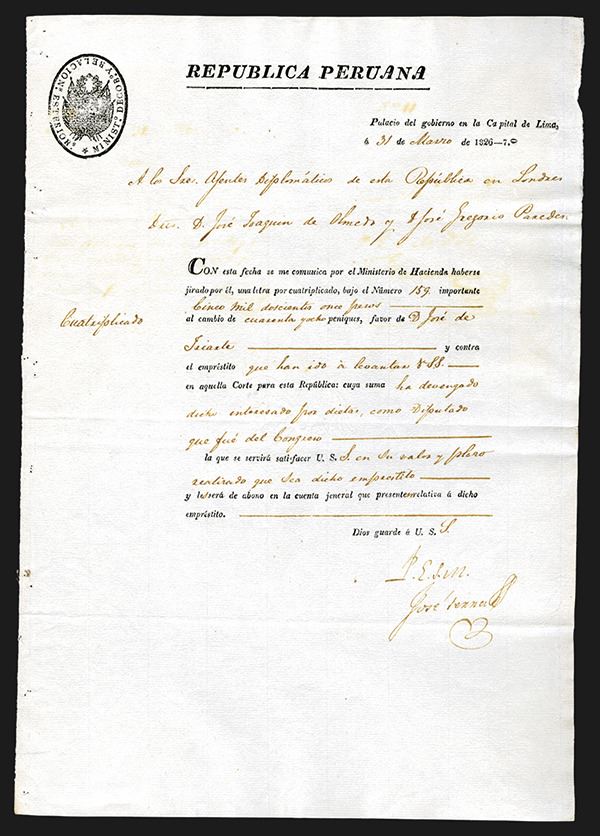 MINISTº. DE GOBº. Y RELACIONˢ. ESTERIORˢ.
REPUBLICA PERUANA
Palacio del gobierno en la Capital de Lima,
á 31 de Marzo de 1826—7.º
A los Sres. Agentes Diplomáticos de esta República en Londres
D. José Joaquin de Olmedo y D José Gregorio Paredes.
CON esta fecha se me comunica por el Ministerio de Hacienda haberse
jirado por él, una letra por cuatriplicado, bajo el Número 159. importante
Cinco mil doscientos once pesos
Cuatriplicado
al cambio de cuarenta y ocho peniques, favor de D José de
Iriarte y contra
el empréstito que han ido á levantar V SS.
en aquella Corte para esta República: cuya suma ha devengado
dicho interesado por dietas, como Diputado
que fué del Congreso
la que se servirá satisfacer U. S. S. en su valor y plazo
realizado que sea dicho emprestito
y les será de abono en la cuenta jeneral que presenten relativa á dicho
empréstito.
Dios guarde á U. S. S.
P. E. S. M.
José Serra